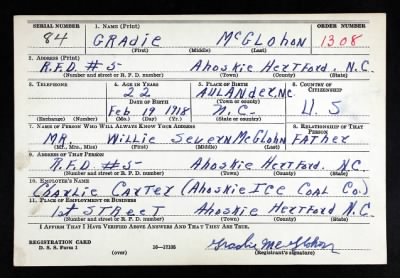 SERIAL NUMBER 1. NAME (Print) ORDER NUMBER
84 GRadie McGLohon 1308
(First) (Middle) (Last)
2. ADDRESS (Print)
R.F.D. #5 Ahoskie HertFord. N.C.
(Number and street or R. F. D. number) (Town) (County) (State)
3. TELEPHONE 4. AGE IN YEARS 5. PLACE OF BIRTH 6. COUNTRY OF CITIZENSHIP
22 AULANder, NC
DATE OF BIRTH (Town or county)
Feb 19 1918 N.C. U S
(Exchange) (Number) (Mo.) (Day) (Yr.) (State or country)
7. NAME OF PERSON WHO WILL ALWAYS KNOW YOUR ADDRESS 8. RELATIONSHIP OF THAT PERSON
MR Willie Severn McGlohn FATher
(Mr., Mrs., Miss) (First) (Middle) (Last)
9. ADDRESS OF THAT PERSON
R.F.D. #5 Ahoskie HertFord. NC.
(Number and street or R. F. D. number) (Town) (County) (State)
10. EMPLOYER'S NAME
Charlie Carter (Ahoskie Ice Coal Co.)
11. PLACE OF EMPLOYMENT OR BUSINESS
1st STReeT Ahoskie HertFord N.C.
(Number and street or R. F. D. number) (Town) (County) (State)
I AFFIRM THAT I HAVE VERIFIED ABOVE ANSWERS AND THAT THEY ARE TRUE.
REGISTRATION CARD
D. S. S. Form 1 (over) 16—17105 Gradie McGlohon
(Registrant's signature)